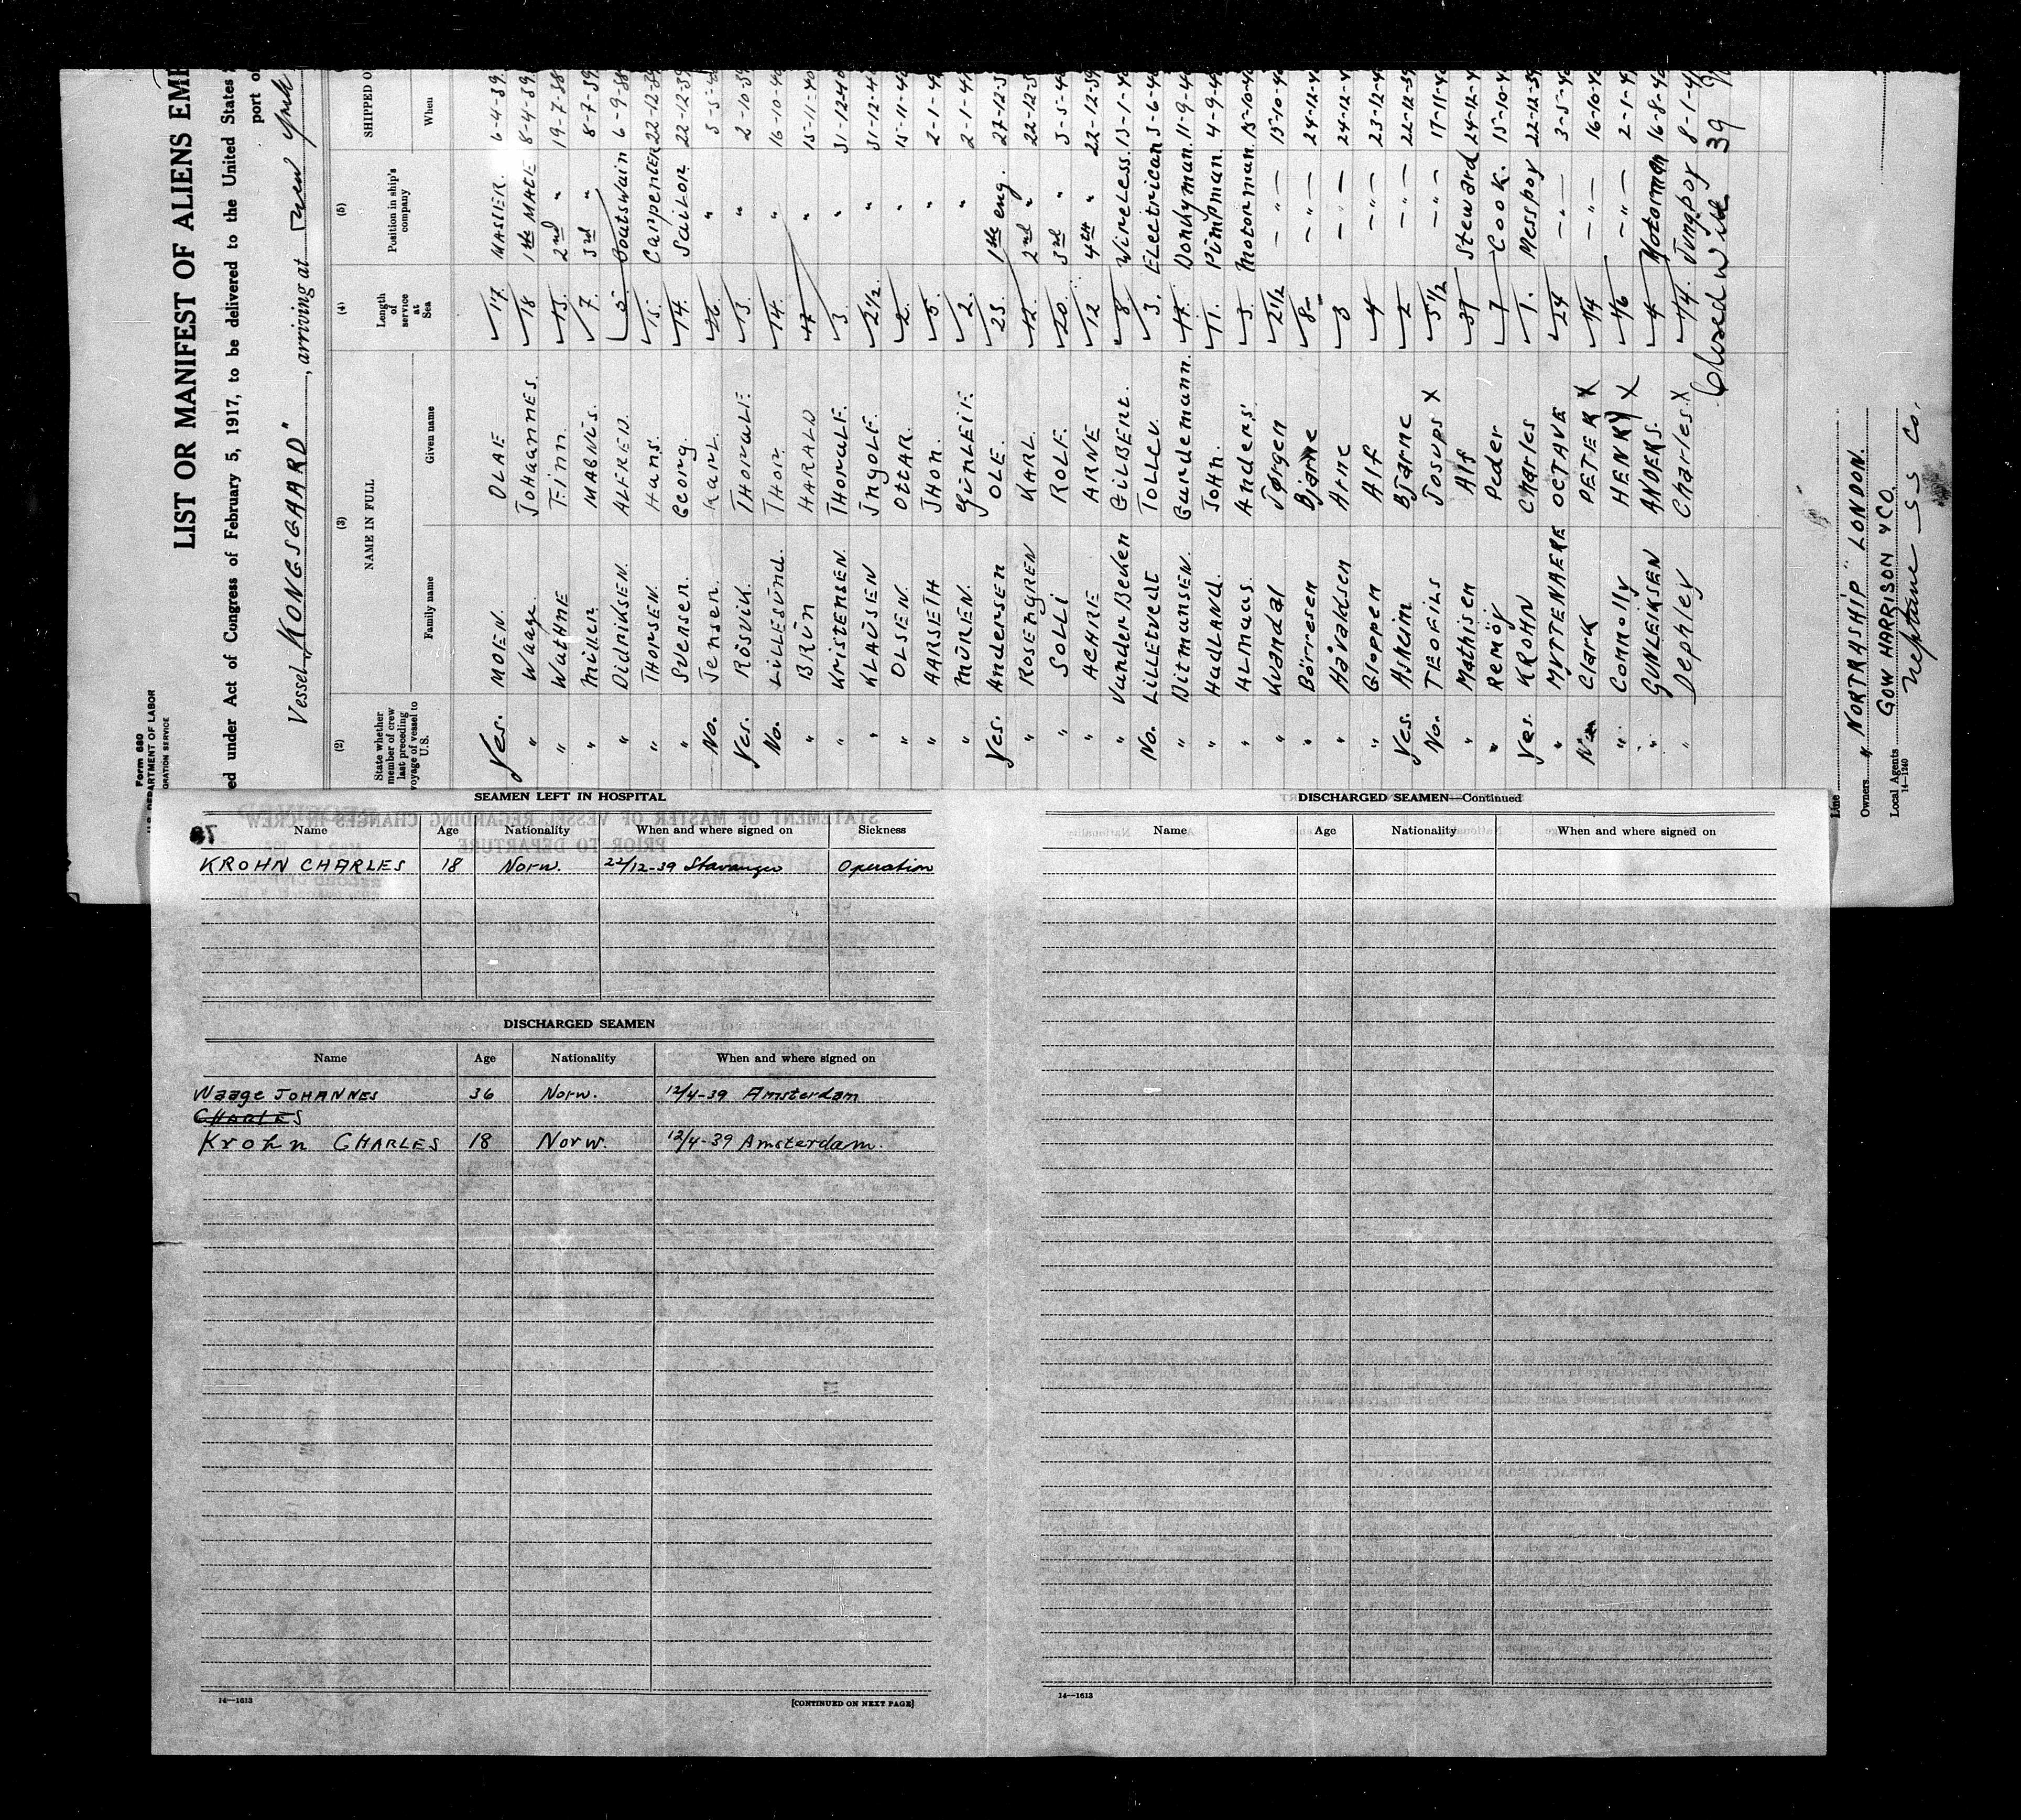 Form 680
DEPARTMENT OF LABOR
GRATION SERVICE
LIST OR MANIFEST OF ALIENS EM
ed under Act of Congress of February 5, 1917, to be delivered to the United States
port o
Vessel "KONGSGAARD", arriving at New York
(2) (3) (4) (5)
State whether member of crew last preceding voyage of vessel to U.S. NAME IN FULL Length of service at Sea Position in ship's company SHIPPED O
Family name Given name When
Yes. MOEN. OLAF 17. MASTER. 6-4-39.
" Waage. JOHANNES. 18 1the MATE 8-4-39.
" Wathne Finn. 13. 2nd " 19-7-38
" Miller. MAGNUS. 7. 3rd " 8-7-39
" Didriksen. ALFRED. 5. Boatswain 6-9-38
" THORSEN. Hans. 15. Carpenter 22-12-39
" Svensen. Georg. 14. Sailor. 22-12-39
No. Jensen. KARL. 26. " 5-5-4
Yes. Rösvik. THORALF. 13. " 2-10-39
No. LILLESUND. THOR. 14. " 16-10-40
" BRUN HARALD 17 " 15-11-40
" KRISTENSEN. THORALF. 3 " 31-12-40
" KLAUSEN INGOLF. 2 1/2. " 31-12-4
" OLSEN. OTTAR. 2. " 15-11-40
" AARSETH JHON. 5. " 2-1-4
" MUREN. GUNLEIF. 2. " 2-1-41
Yes. Andersen OLE. 25. 1the eng. 27-12-3
" ROSENGREN KARL. 12. 2nd " 22-12-3
" SOLLI ROLF. 20. 3rd " 3-5-4
" ACHRE ARNE 12 4th " 22-12-39
" Vander Becken GILBERT. 8 Wireless. 13-1-4
No. LILLETVEDT TOLLEV. 3. Electrican 5-6-40
" Ditmansen. Gardemann. 17. Donkyman. 11-9-40
" Hadland. John. 11. Pumpman. 4-9-40
" ALMAAS. Anders. 3. Motorman. 15-10-40
" Kvandal Jørgen 2 1/2 - " - 15-10-4
" Börresen Bjarne 8- - " - 24-12-4
" Håvaldsen Arne 3 - " - 24-12-4
" Gloppen Alf 4 - " - 23-12-4
Yes. Asheim. Bjarne 2 - " - 22-12-39
No. TEOFILS Josups X 5 1/2 - " - 17-11-4
" Mathisen Alf 37 Steward 24-12-4
" Remöy Peder 7 Cook. 15-10-4
Yes. KROHN Charles 1. Messboy 22-12-39
" MYTTENAERE OCTAVE 24 - " - 3-5-4
No Clark PETER X 14 - " - 16-10-4
" Connolly HENRY X 16 - " - 2-1-4
" GUNLEKSEN ANDERS. 4 Motorman 16-8-4
" Dephley Charles. X 14. Jungboy 8-1-4
Closed with 39
Line
Owners "NORTRASHIP" LONDON.
Local Agents GOW HARRISON & CO.
Neptune S S Co.
14-1240
SEAMEN LEFT IN HOSPITAL
Name Age Nationality When and where signed on Sickness
KROHN CHARLES 18 Norw. 22/12-39 Stavanger Operation
DISCHARGED SEAMEN
Name Age Nationality When and where signed on
Waage JOHANNES 36 Norw. 12/4-39 Amsterdam
CHARLES
Krohn CHARLES 18 Norw. 12/4-39 Amsterdam.
14—1613 [CONTINUED ON NEXT PAGE]
DISCHARGED SEAMEN—Continued
Name Age Nationality When and where signed on
14—1613